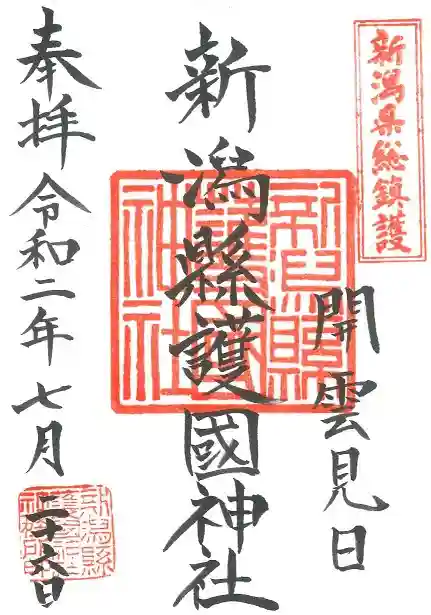 新潟県総鎮護
開雲見日
新潟縣護國神社
奉拝 令和二年七月二十六日
新潟縣護國神社